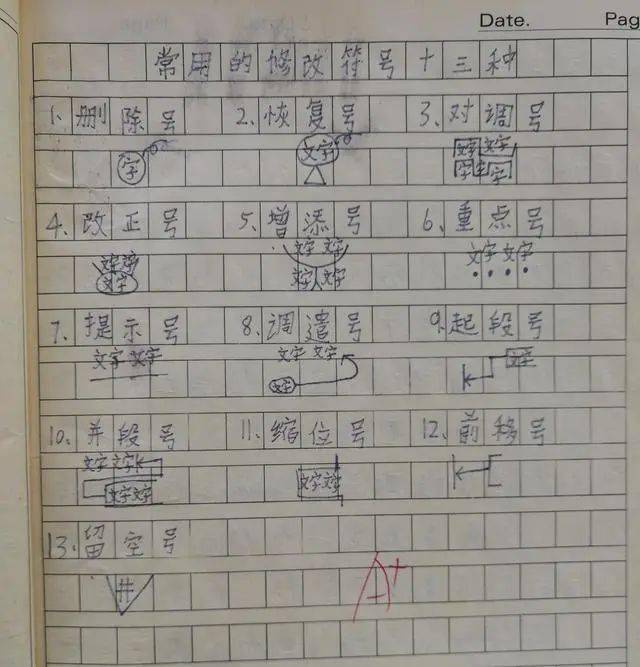 Date. Pag
常用的修改符号十三种
1、删除号 2、恢复号 3、对调号
字 文字 文字 文字
字 字
4、改正号 5、增添号 6、重点号
文字 文字 文字 文字 文字
文字 文字 文字
7、提示号 8、调遣号 9、起段号
文字 文字 文字 文字 文字
文字
10、并段号 11、缩位号 12、前移号
文字 文字
文字 文字 文字 文字
13、留空号
井
A+